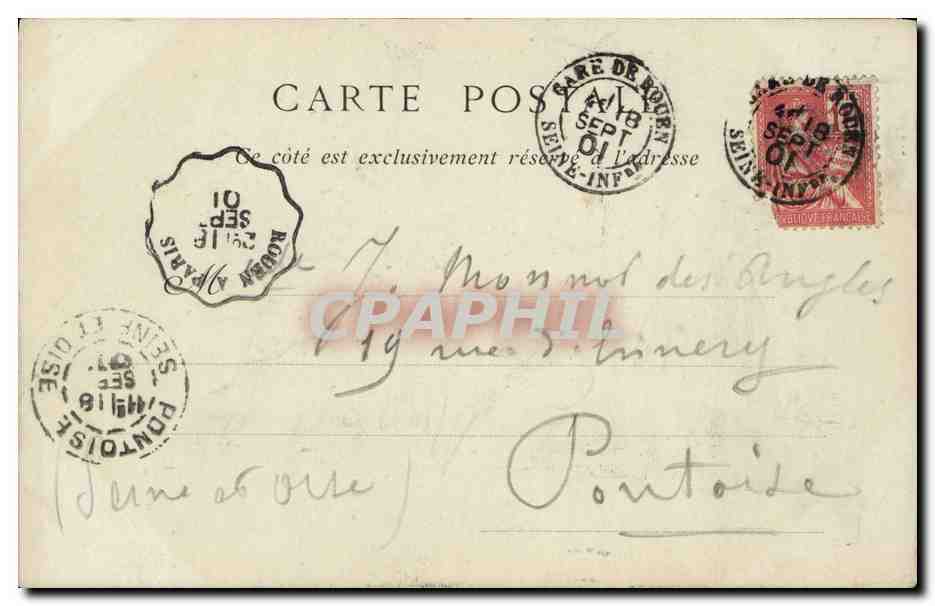 CARTE POSTALE
Ce côté est exclusivement réservé à l'adresse
GARE DE ROUEN
18
SEPT
01
SEINE-INFRE
GARE DE ROUEN
18
SEPT
01
SEINE-INFRE
RÉPUBLIQUE FRANÇAISE
ROUEN A PARIS
18
SEPT
01
M J. Monnot des Angles
CPAPHIL
19 rue d'Ennery
PONTOISE
18
SEPT
01
SEINE ET OISE
Pontoise
(Seine et Oise)